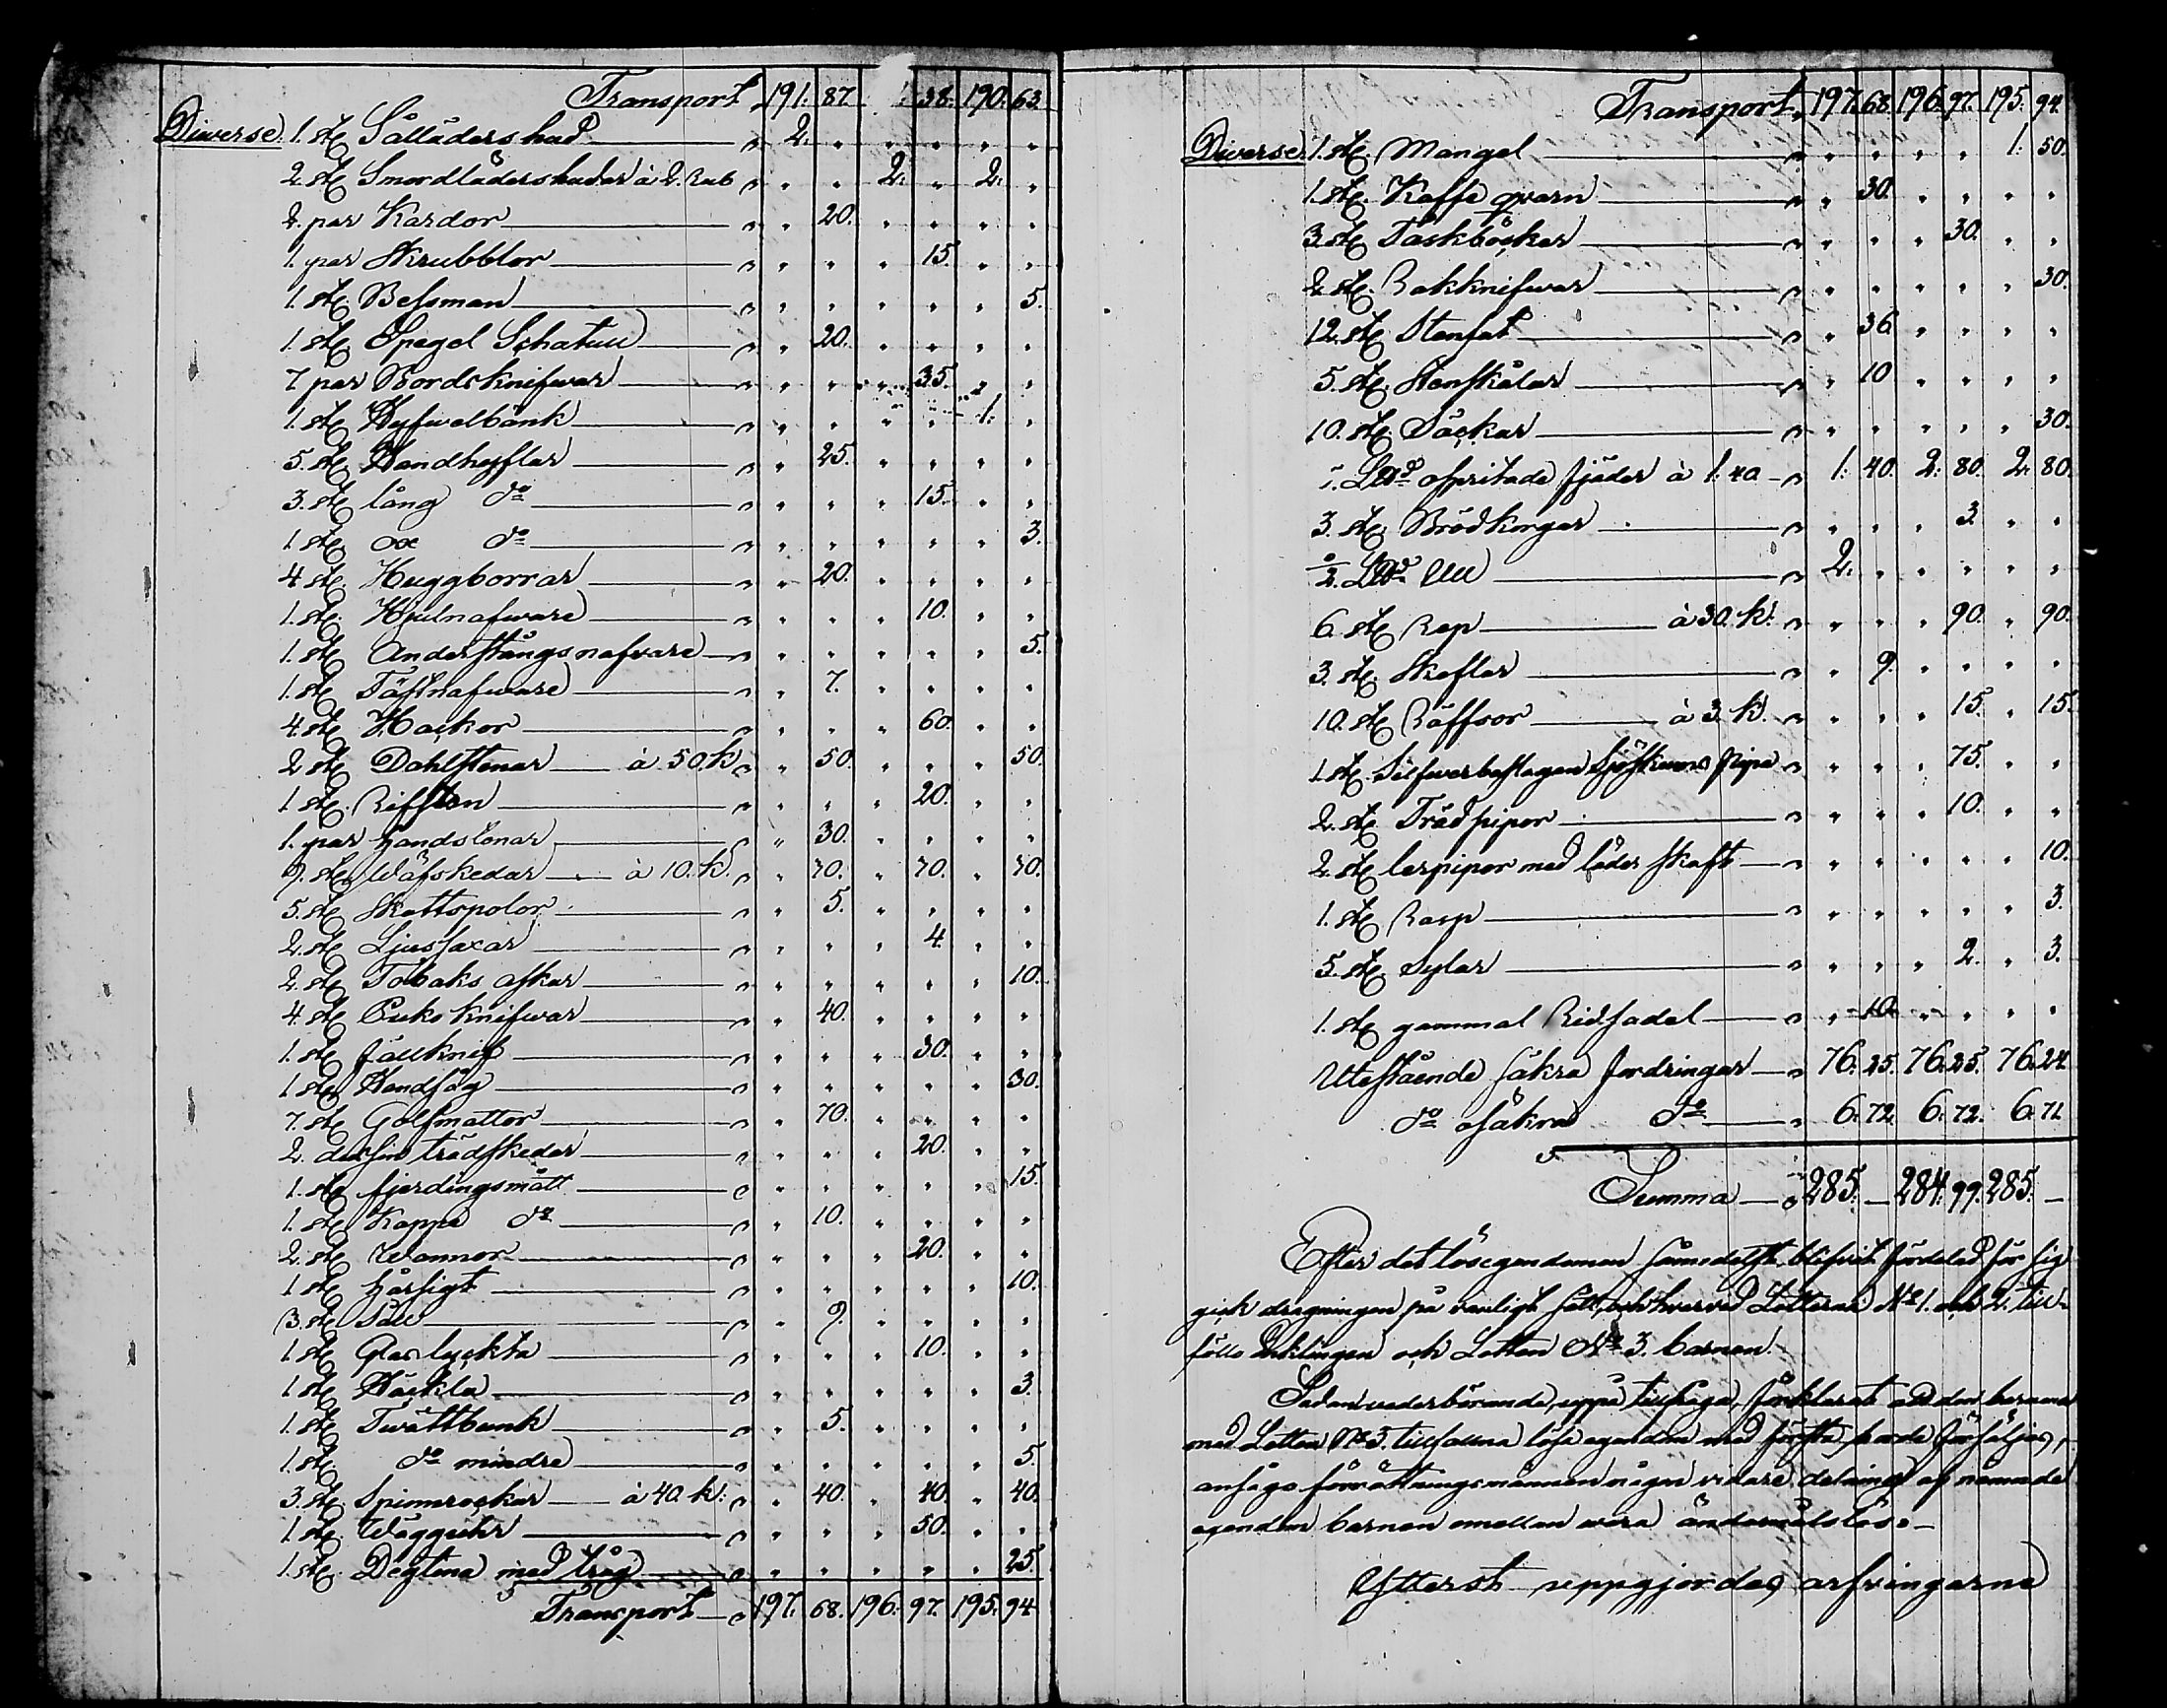 Transport 191. 87. 38. 190. 63.
Diverse. 1. st. Sålläders hud " 2. " " " " "
2. st. Smordläders hudar à 2. Rub " " " 2. " 2. "
2. par Kardor " " 20. " " " "
1. par Skrubblor " " " " 15. " "
1. st. Bessman " " " " " " 5.
1. st. Spegel Schatull " " 20. " " " "
7 par Bordsknifwar " " " " 35. " "
1. st. Hyfwelbänk " " " " " 1. "
5. st. Handhyflar " " 25. " " " "
3. st. lång do " " " " 15. " "
1. st. ox do " " " " " " 3.
4 st. Huggborrar " " 20. " " " "
1. st. Hjulnafware " " " " 10. " "
1. st. Anderstångsnafvare " " " " " " 5.
1. st. Täftnafware " " 7. " " " "
4. st. Hackor " " " " 60. " "
2 st. Dahlstenar à 50. k " " 50. " " " 50.
1 st. Rifsten " " " " 20. " "
1. par handstenar " " 30. " " " "
9. st. Wäfskedar à 10. k. " " 30. " 30. " 30.
5. st. Skottspolor " " 5. " " " "
2. st. Ljussaxar " " " " 4. " "
2. st. Tobaks askar " " " " " " 10.
4. st. Puko knifwar " " 40. " " " "
1. st. fällknif " " " " 30. " "
1 st. Handsåg " " " " " " 30.
7. st. Golfmattor " " 70. " " " "
2. dussin trädskedar " " " " 20. " "
1. st. fjerdingsmått " " " " " " 15.
1. st. Kappe do " " 10. " " " "
2. st. Wannor " " " " 20. " "
1 st. hårsigt " " " " " " 10.
3. st. Såll " " 9. " " " "
1. st. Glaslyckta " " " " 10. " "
1 st. Häckla " " " " " " 3.
1. st. Twättbunk " " 5. " " " "
1. st. do mindre " " " " " " 5.
3. st. Spinnrockar à 40. k: " " 40. " 40. " 40.
1 st. Wägguhr " " " " 50. " "
1. st. Degtina med tråg " " " " " " 25.
Transport " 197. 68. 196. 97. 195. 94
Transport. 197. 68. 196. 97. 195. 94.
Diverse. 1. st. Mangel " " " " " 1. 50.
1. st. Kaffe qvarn " " 30. " " " "
3. st. Taskböcker " " " " 30. " "
2 st. Rakknifwar " " " " " " 30.
12. st. Stenfat " " 36 " " " "
5. st. Stenskålar " " 10 " " " "
10. st. Säckar " " " " " " 30.
5. L℔d ospritade fjäder à 1. 40 " 1. 40. 2. 80. 2. 80.
3. st. Brödkorgar " " " " 3. " "
½. L℔d Ull " 2. " " " " "
6. st. Rep à 30. k. " " " " 90. " 90.
3. st. Skoflar " " 9. " " " "
10. st. Räffsor à 3. k. " " " " 15. " 15.
1. st. Silfwerbeslagen Sjöskums Pipa " " " " 75. " "
2. st. Trädpipor " " " " 10. " "
2. st. lerpipor med läder skaft " " " " " " 10.
1. st. Rasp " " " " " " 3.
5. st. Sylar " " " " 2. " 3.
1. st. gammal Ridsadel " " 10. " " " "
Utestående säkra fordringar " 76. 25. 76. 25. 76. 24
do osäkra do " 6. 72. 6. 72. 6. 71
Summa " 285. — 284. 99. 285. —
Efter det lösegendomen sålunda blifvit fördelad för sig
gick dragningen på vanligt sätt, och hvarvid Lotterna No 1. och 2. till-
föllo Enklingen och Lotten No 3. barnen.
Sedan vederbörande, uppå tillfråga, förklarat att den barnen
med Lotten No 3. tillfallna lösa egendom med första borde försäljas,
ansågo förrättningsmännen någon vidare delning af nämnde
egendom barnen emellan vara ändamålslös. —
Ytterst uppgjordes arfvingarne